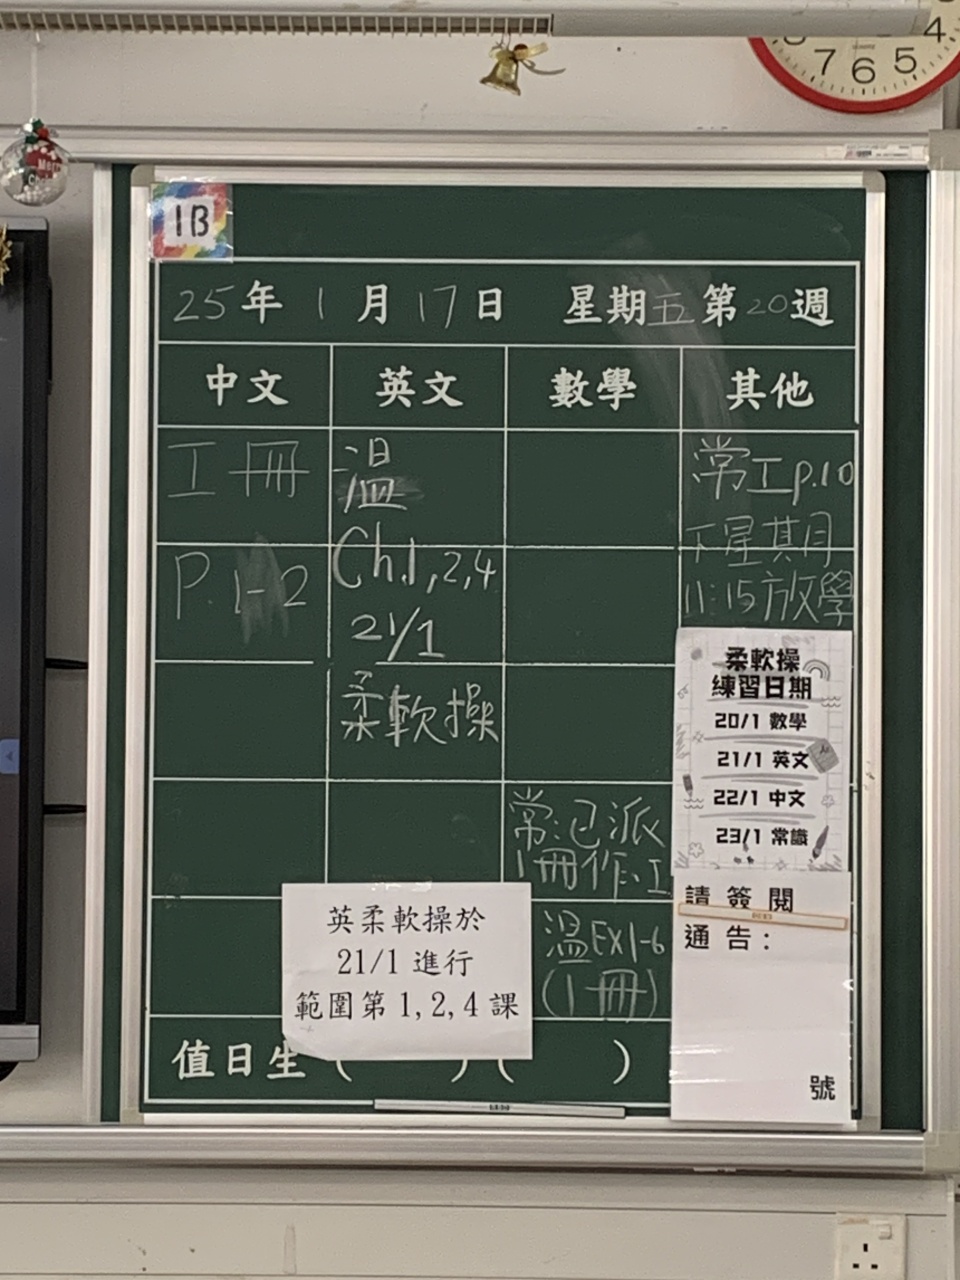 4
7 6 5
1B
25年1月17日 星期五第20週
中文 英文 數學 其他
工冊
P.1-2
溫
Ch.1,2,4
21/1
柔軟操
常:已派
1冊作,工
溫EX1-6
(1冊)
常工p.10
下星其月
11:15放學
柔軟操
練習日期
20/1 數學
21/1 英文
22/1 中文
23/1 常識
請簽閱
通告:
號
英柔軟操於
21/1 進行
範圍第 1,2,4 課
值日生 ( ) ( )